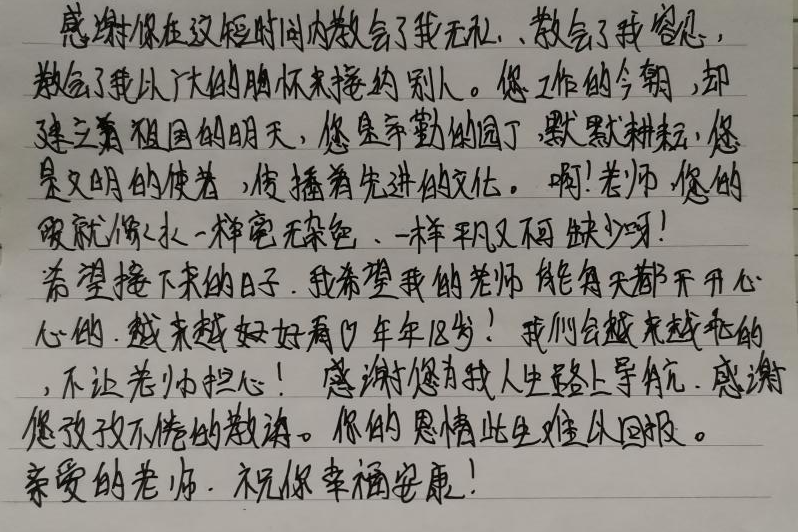 感谢你在这短时间内教会了我无私、教会了我容忍，
教会了我以广大的胸怀来接纳别人。您工作的今朝，却
建立着祖国的明天，您是辛勤的园丁，默默耕耘，您
是文明的使者，传播着先进的文化。啊！老师，您的
就像水一样毫无杂色、一样平凡又不可缺少呀！
希望接下来的日子．我希望我的老师能每天都开开心
心的．越来越好好看♡年年18岁！我们会越来越的
，不让老师担心！感谢您为我人生路上导航．感谢
您孜孜不倦的教诲。你的恩情此生难以回报。
亲爱的老师．祝你幸福安康！